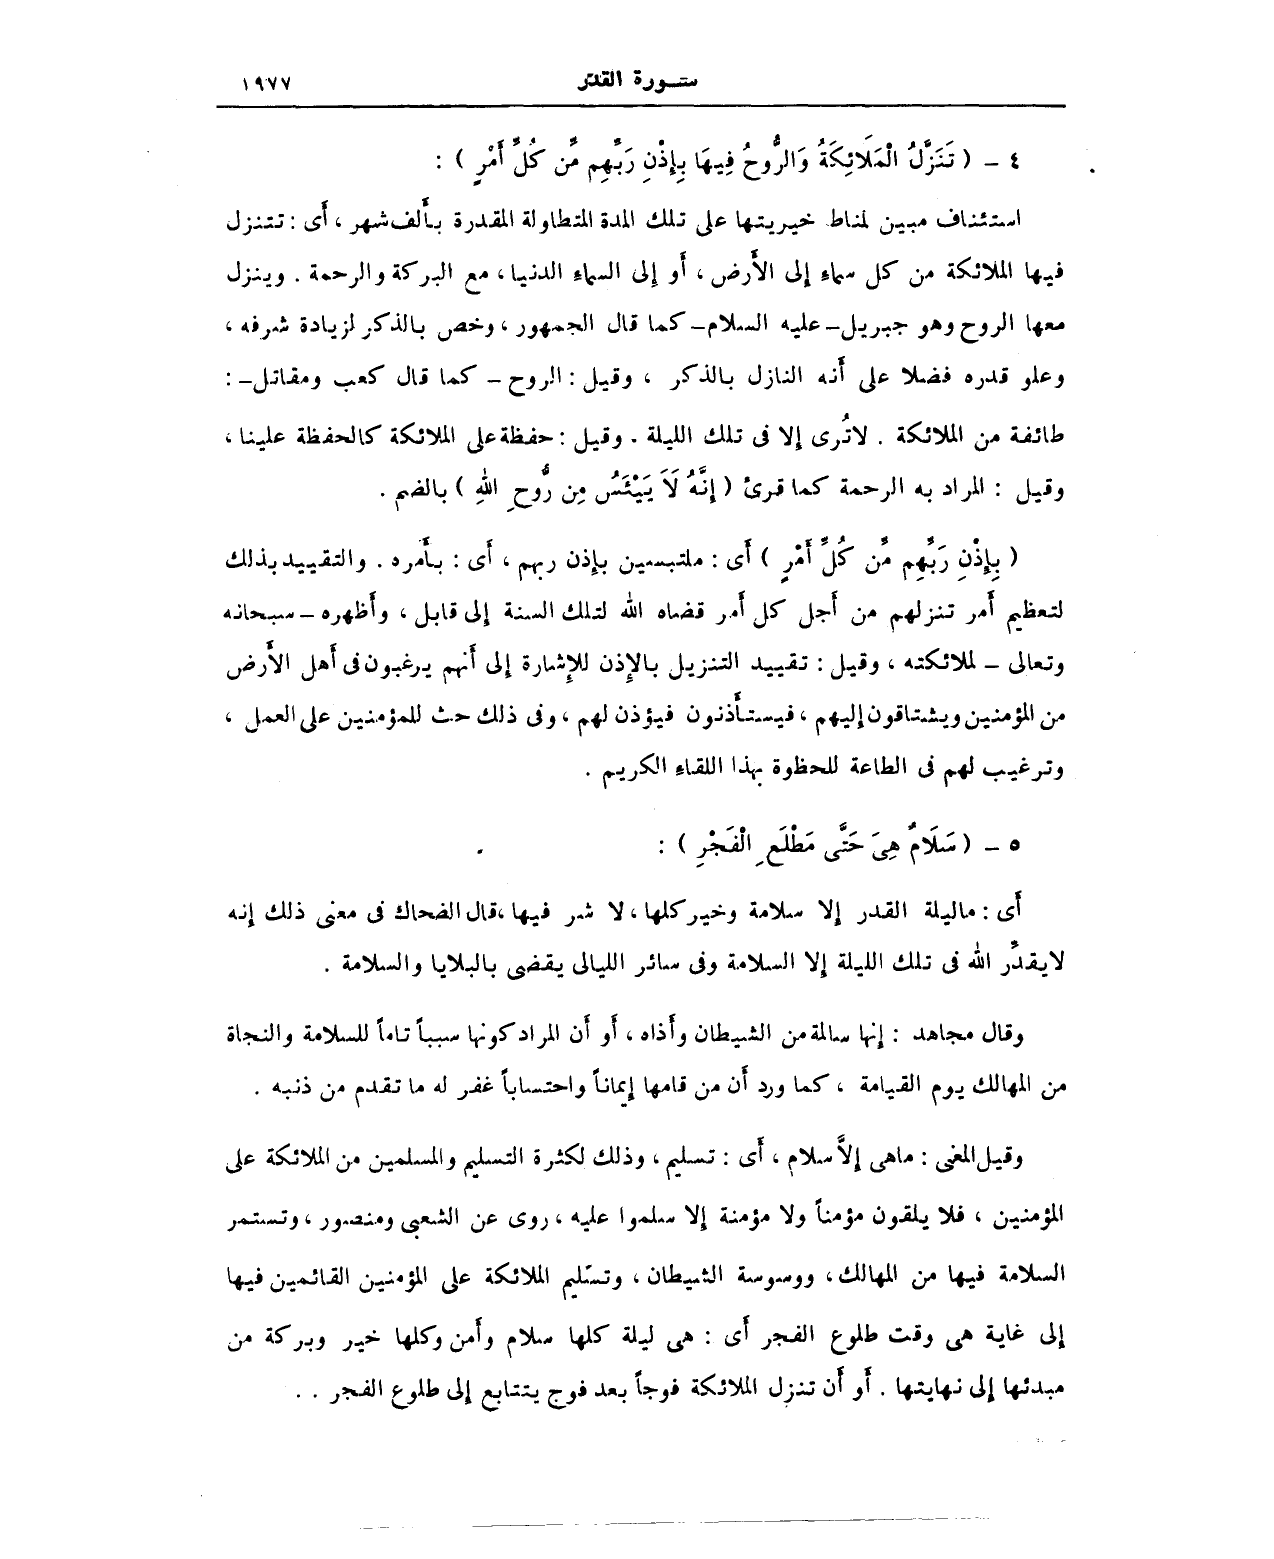 ســورة القدر ١٩٧٧
٤ – ( تَنَزَّلُ الْمَلَائِكَةُ وَالرُّوحُ فِيهَا بِإِذْنِ رَبِّهِم مِّن كُلِّ أَمْرٍ ) :
استئناف مبين لمناط خيريتها على تلك المدة المتطاولة المقدرة بألف شهر ، أى : تتنزل
فيها الملائكة من كل سماء إلى الأرض ، أو إلى السماء الدنيا ، مع البركة والرحمة . وينزل
معها الروح وهو جبريل – عليه السلام – كما قال الجمهور ، وخص بالذكر لزيادة شرفه ،
وعلو قدره فضلا على أنه النازل بالذكر ، وقيل : الروح – كما قال كعب ومقاتل – :
طائفة من الملائكة . لاتُرى إلا فى تلك الليلة . وقيل : حفظة على الملائكة كالحفظة علينا ،
وقيل : المراد به الرحمة كما قرئ ( إِنَّهُ لَا يَيْئَسُ مِن رُّوحِ اللهِ ) بالضم .
( بِإِذْنِ رَبِّهِم مِّن كُلِّ أَمْرٍ ) أى : ملتبسين بإذن ربهم ، أى : بأمره . والتقييد بذلك
لتعظيم أمر تنزلهم من أجل كل أمر قضاه الله لتلك السنة إلى قابل ، وأظهره – سبحانه
وتعالى – لملائكته ، وقيل : تقييد التنزيل بالإذن للإشارة إلى أنهم يرغبون فى أهل الأرض
من المؤمنين ويشتاقون إليهم ، فيستأذنون فيؤذن لهم ، وفى ذلك حث للمؤمنين على العمل ،
وترغيب لهم فى الطاعة للحظوة بهذا اللقاء الكريم .
٥ – ( سَلَامٌ هِىَ حَتَّى مَطْلَعِ الْفَجْرِ ) :
أى : ماليلة القدر إلا سلامة وخير كلها ، لا شر فيها ، قال الضحاك فى معنى ذلك إنه
لايقدِّر الله فى تلك الليلة إلا السلامة وفى سائر الليالى يقضى بالبلايا والسلامة .
وقال مجاهد : إنها سالمة من الشيطان وأذاه ، أو أن المراد كونها سبباً تاماً للسلامة والنجاة
من المهالك يوم القيامة ، كما ورد أن من قامها إيماناً واحتساباً غفر له ما تقدم من ذنبه .
وقيل المغنى : ماهى إلاَّ سلام ، أى : تسليم ، وذلك لكثرة التسليم والمسلمين من الملائكة على
المؤمنين ، فلا يلقون مؤمناً ولا مؤمنة إلا سلموا عليه ، روى عن الشعبى ومنصور ، وتستمر
السلامة فيها من المهالك ، ووسوسة الشيطان ، وتسليم الملائكة على المؤمنين القائمين فيها
إلى غاية هى وقت طلوع الفجر أى : هى ليلة كلها سلام وأمن وكلها خير وبركة من
مبدئها إلى نهايتها . أو أن تنزل الملائكة فوجاً بعد فوج يتتابع إلى طلوع الفجر . .